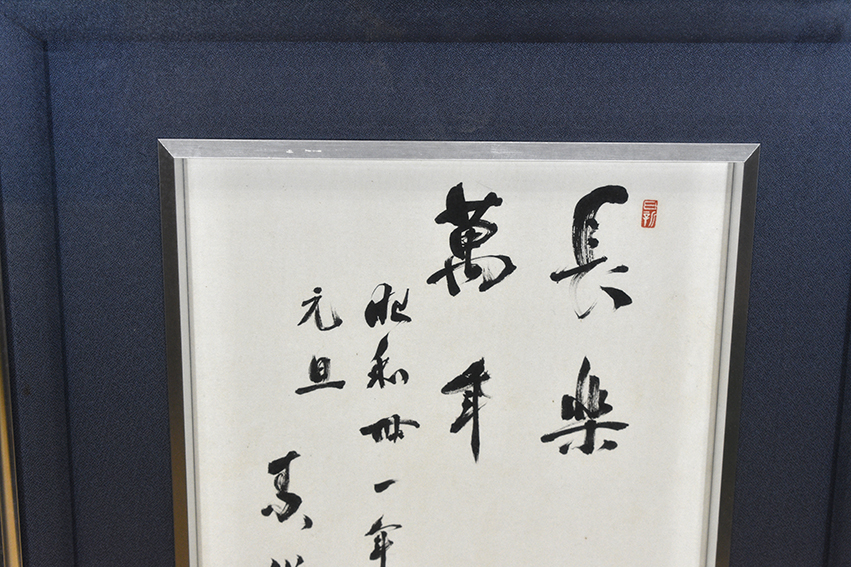 長樂
萬年
昭和卌一年
元旦